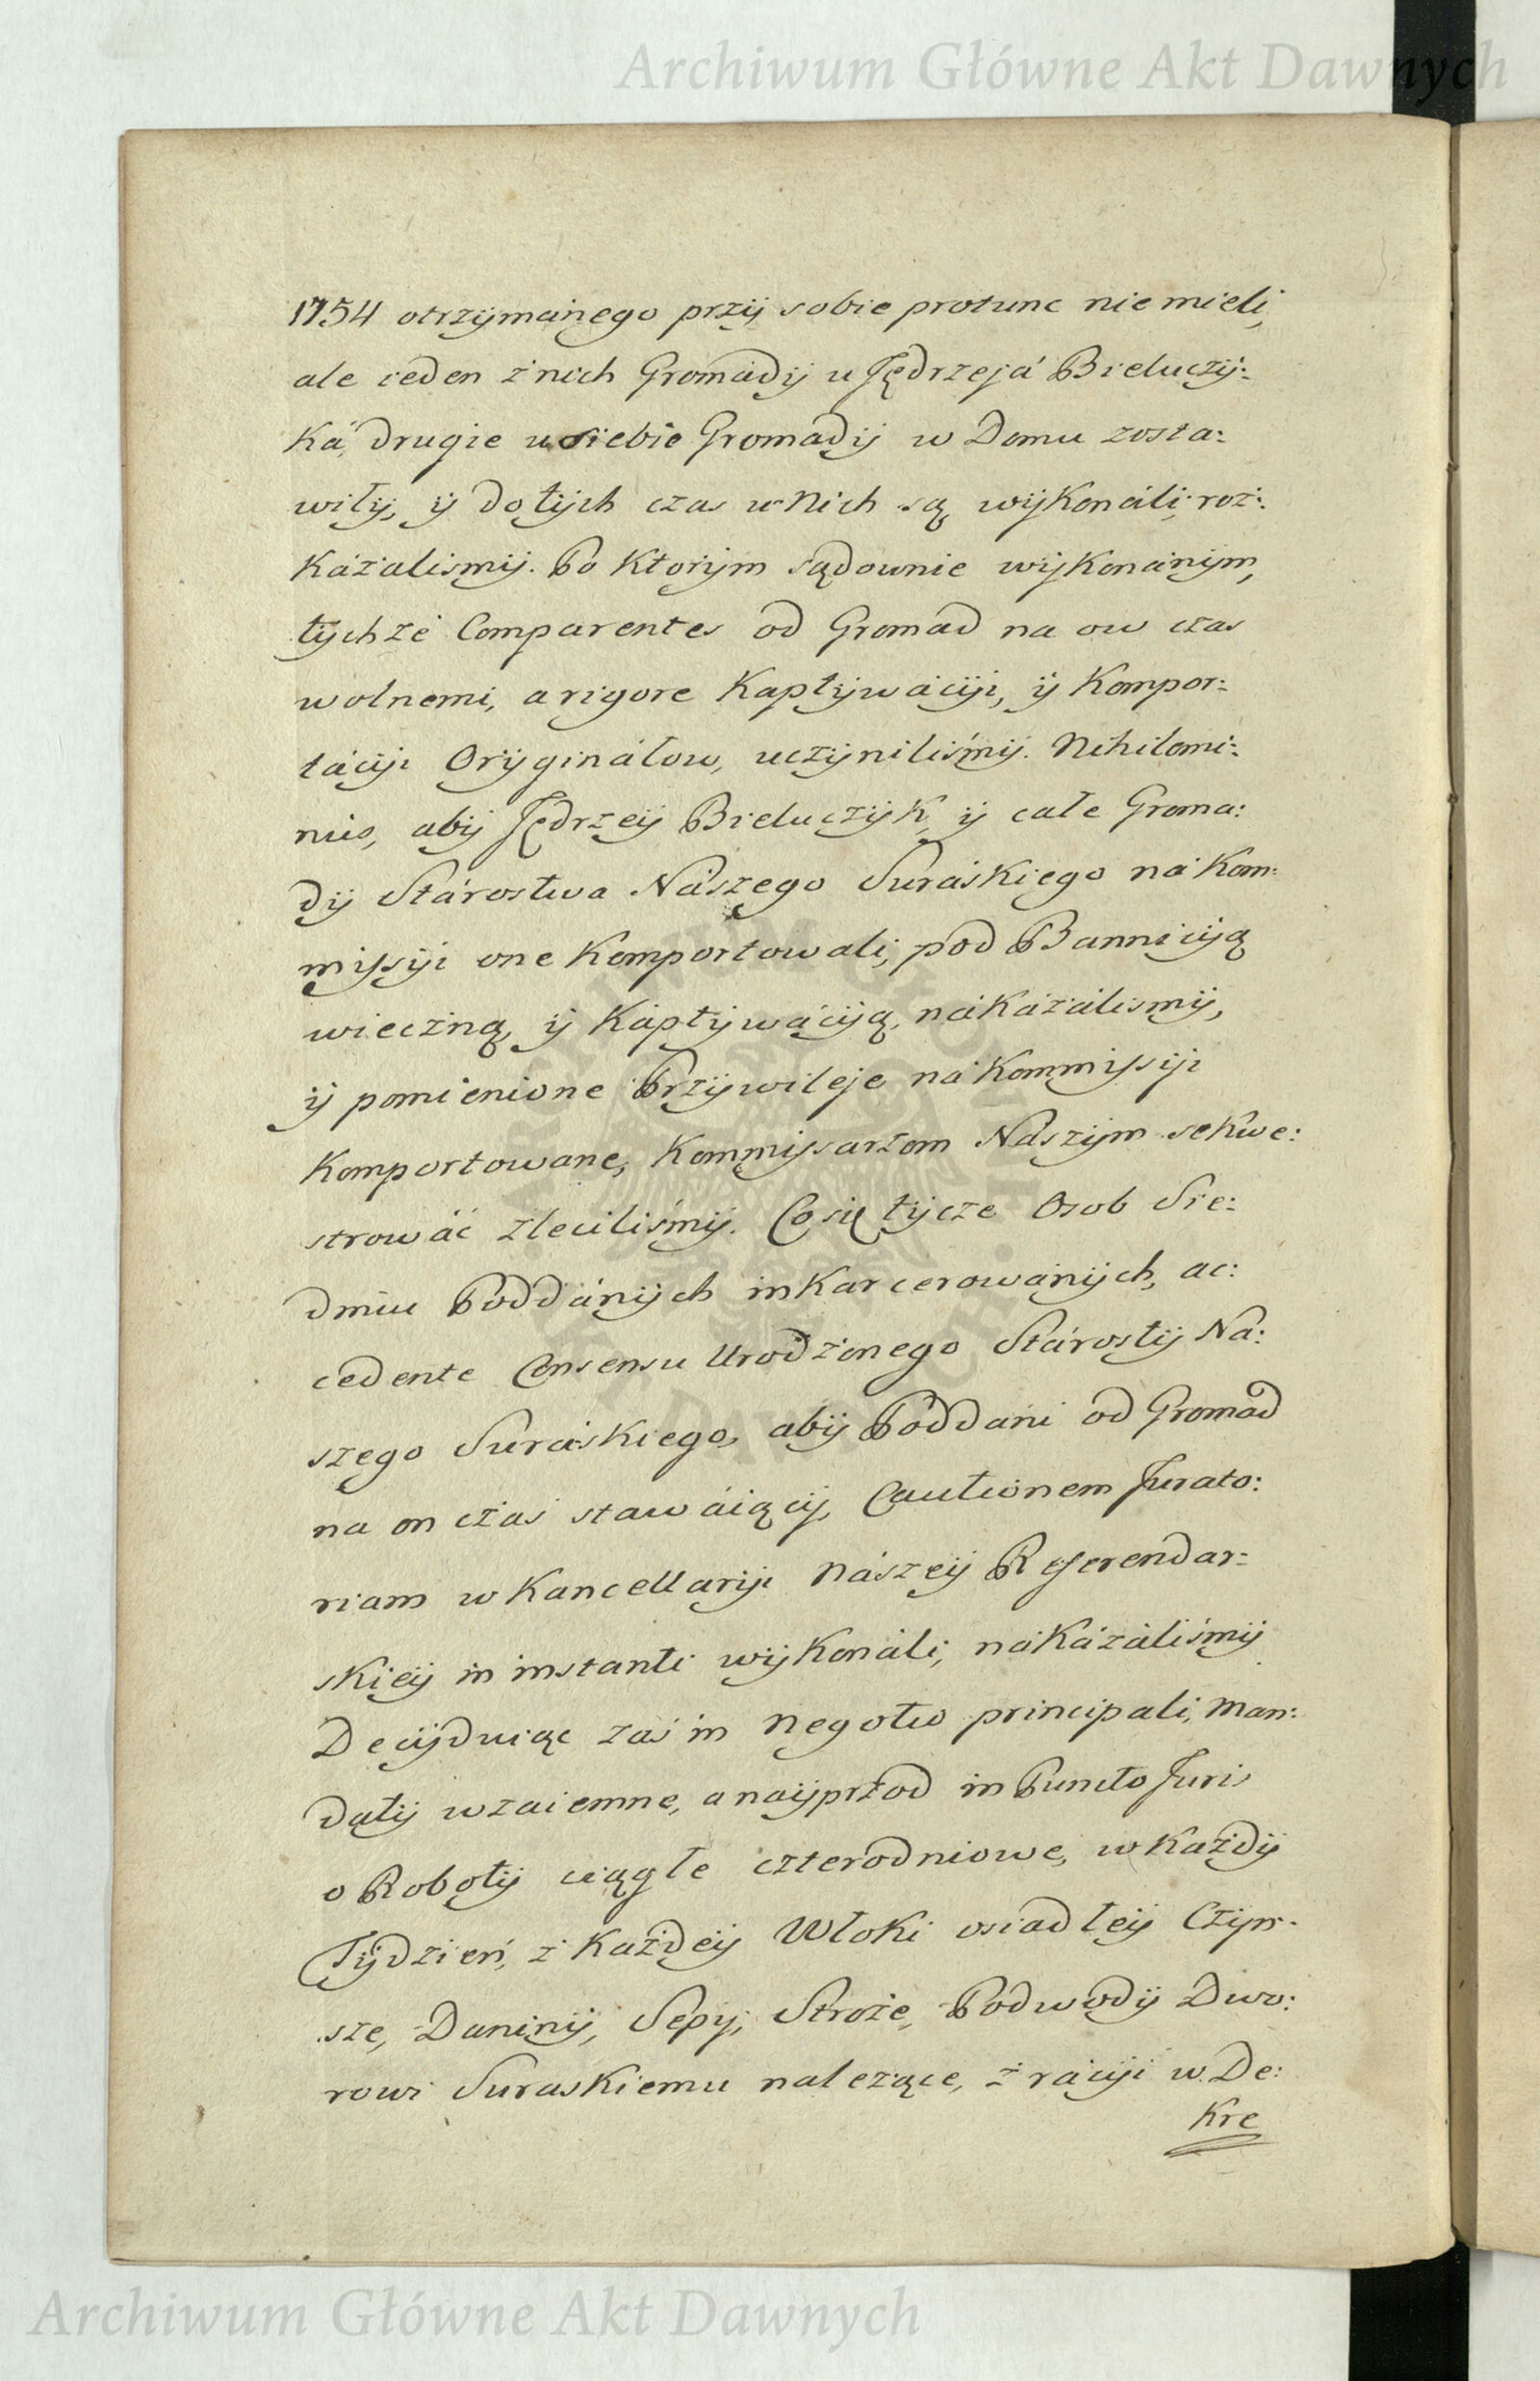 Archiwum Główne Akt Dawnych
1754 otrzÿmánego przÿ sobie protunc nie mieli,
ale ieden z nich Gromádÿ u Jędrzejá Bieluczÿ:
ká, drugie u siebie Gromadÿ w Domu zosta:
wiłÿ, ÿ do tÿch czas u Nich są, wÿkonáli, roz:
kázalismÿ. Po ktorÿm sądownie wÿkonánÿm,
tÿchże Comparentes od Gromad na ow czas
wolnemi, a rigore Kaptÿwáciÿi, ÿ Kompor:
táciÿi Orÿginałow, uczÿniliśmÿ. Nihilomi:
nus, abÿ Jędrzeÿ Bieluczÿk, ÿ całe Groma:
dÿ Stárostwa Nászego Suráskiego ná Kom:
missÿi one komportowali, pod Banniciÿą
wieczną, ÿ Káptÿwáciÿą, nákázálismÿ,
ÿ pomienione Przÿwileje ná Kommissÿi
komportowane, Kommissarzom Nászÿm sekwe:
strowáć zleciliśmÿ. Co się tÿcze Osob Sie:
dmiu Poddánÿch inkarcerowánÿch, ac:
cedente Consensu Urodzonego Stárostÿ Ná:
szego Suráskiego, abÿ Poddáni od Gromad
na on czas stawáiącÿ, Cautionem Jurato:
riam w Kancellarÿi Nászeÿ Referendar:
skieÿ in instanti wÿkonáli, nákázáliśmÿ
Decÿduiąc zaś in Negotio principali, Man:
datÿ wzaiemne, a naÿprzod in Puncto Juris
o Robotÿ ciągłe czterodniowe, w każdÿ
Tÿdzień, z każdeÿ Włoki osiadłeÿ Czÿn:
sze, Daninÿ, Sepÿ, Stroże, Podwodÿ Dwo:
rowi Suraskiemu nalezące, z ráciÿi w De:
kre
Archiwum Główne Akt Dawnych